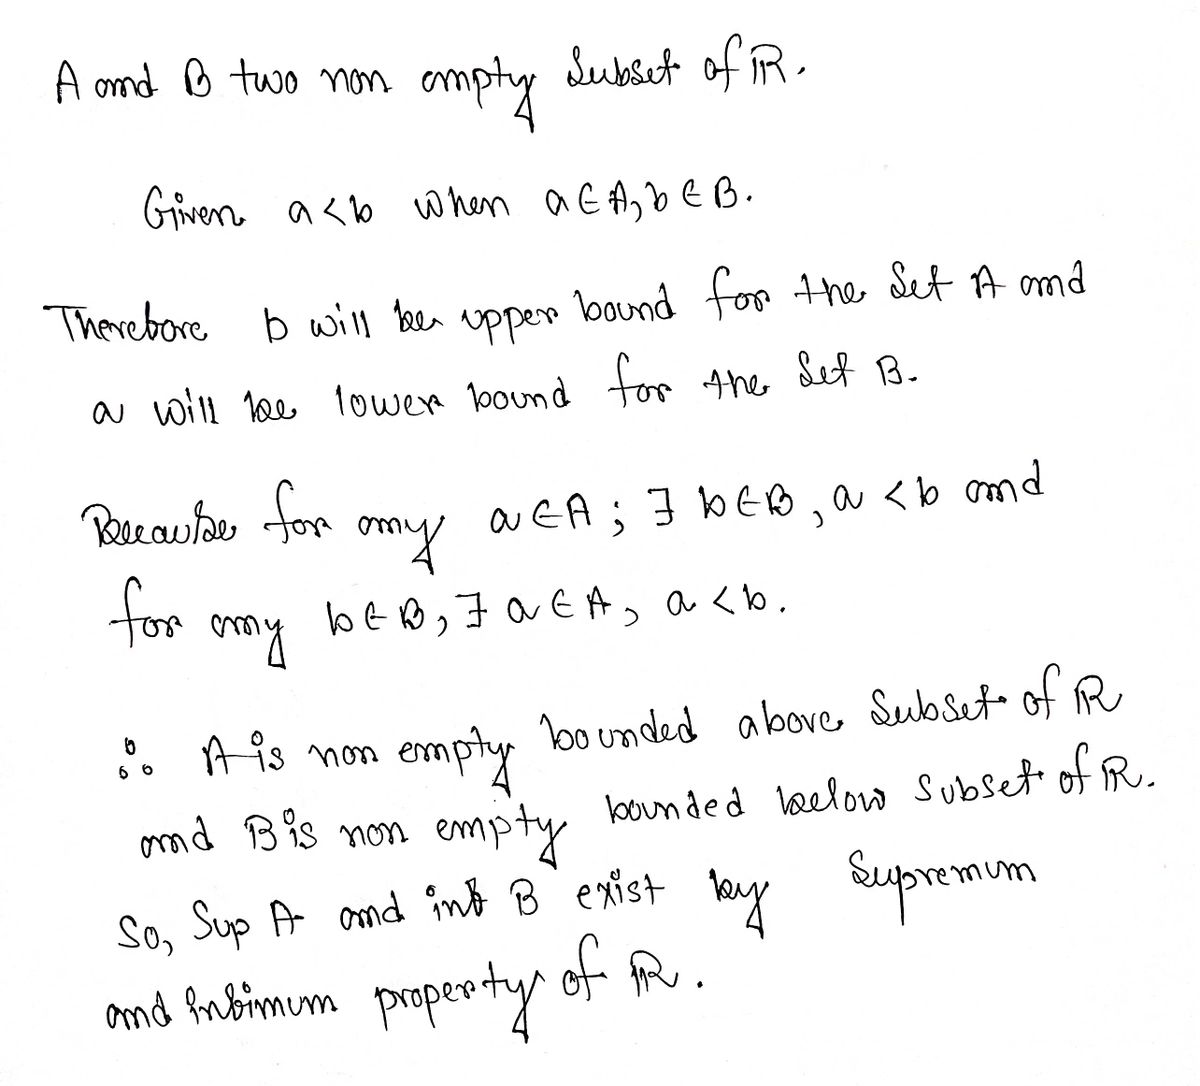 A and B two non empty subset of ℝ.
Given a < b when a ∈ A, b ∈ B.
Therefore b will be upper bound for the set A and
a will be lower bound for the set B.
Because for any a ∈ A ; ∃ b ∈ B, a < b and
for any b ∈ B, ∃ a ∈ A, a < b.
∴ A is non empty bounded above subset of ℝ
and B is non empty bounded below subset of ℝ.
So, Sup A and inf B exist by Supremum
and infimum property of ℝ.